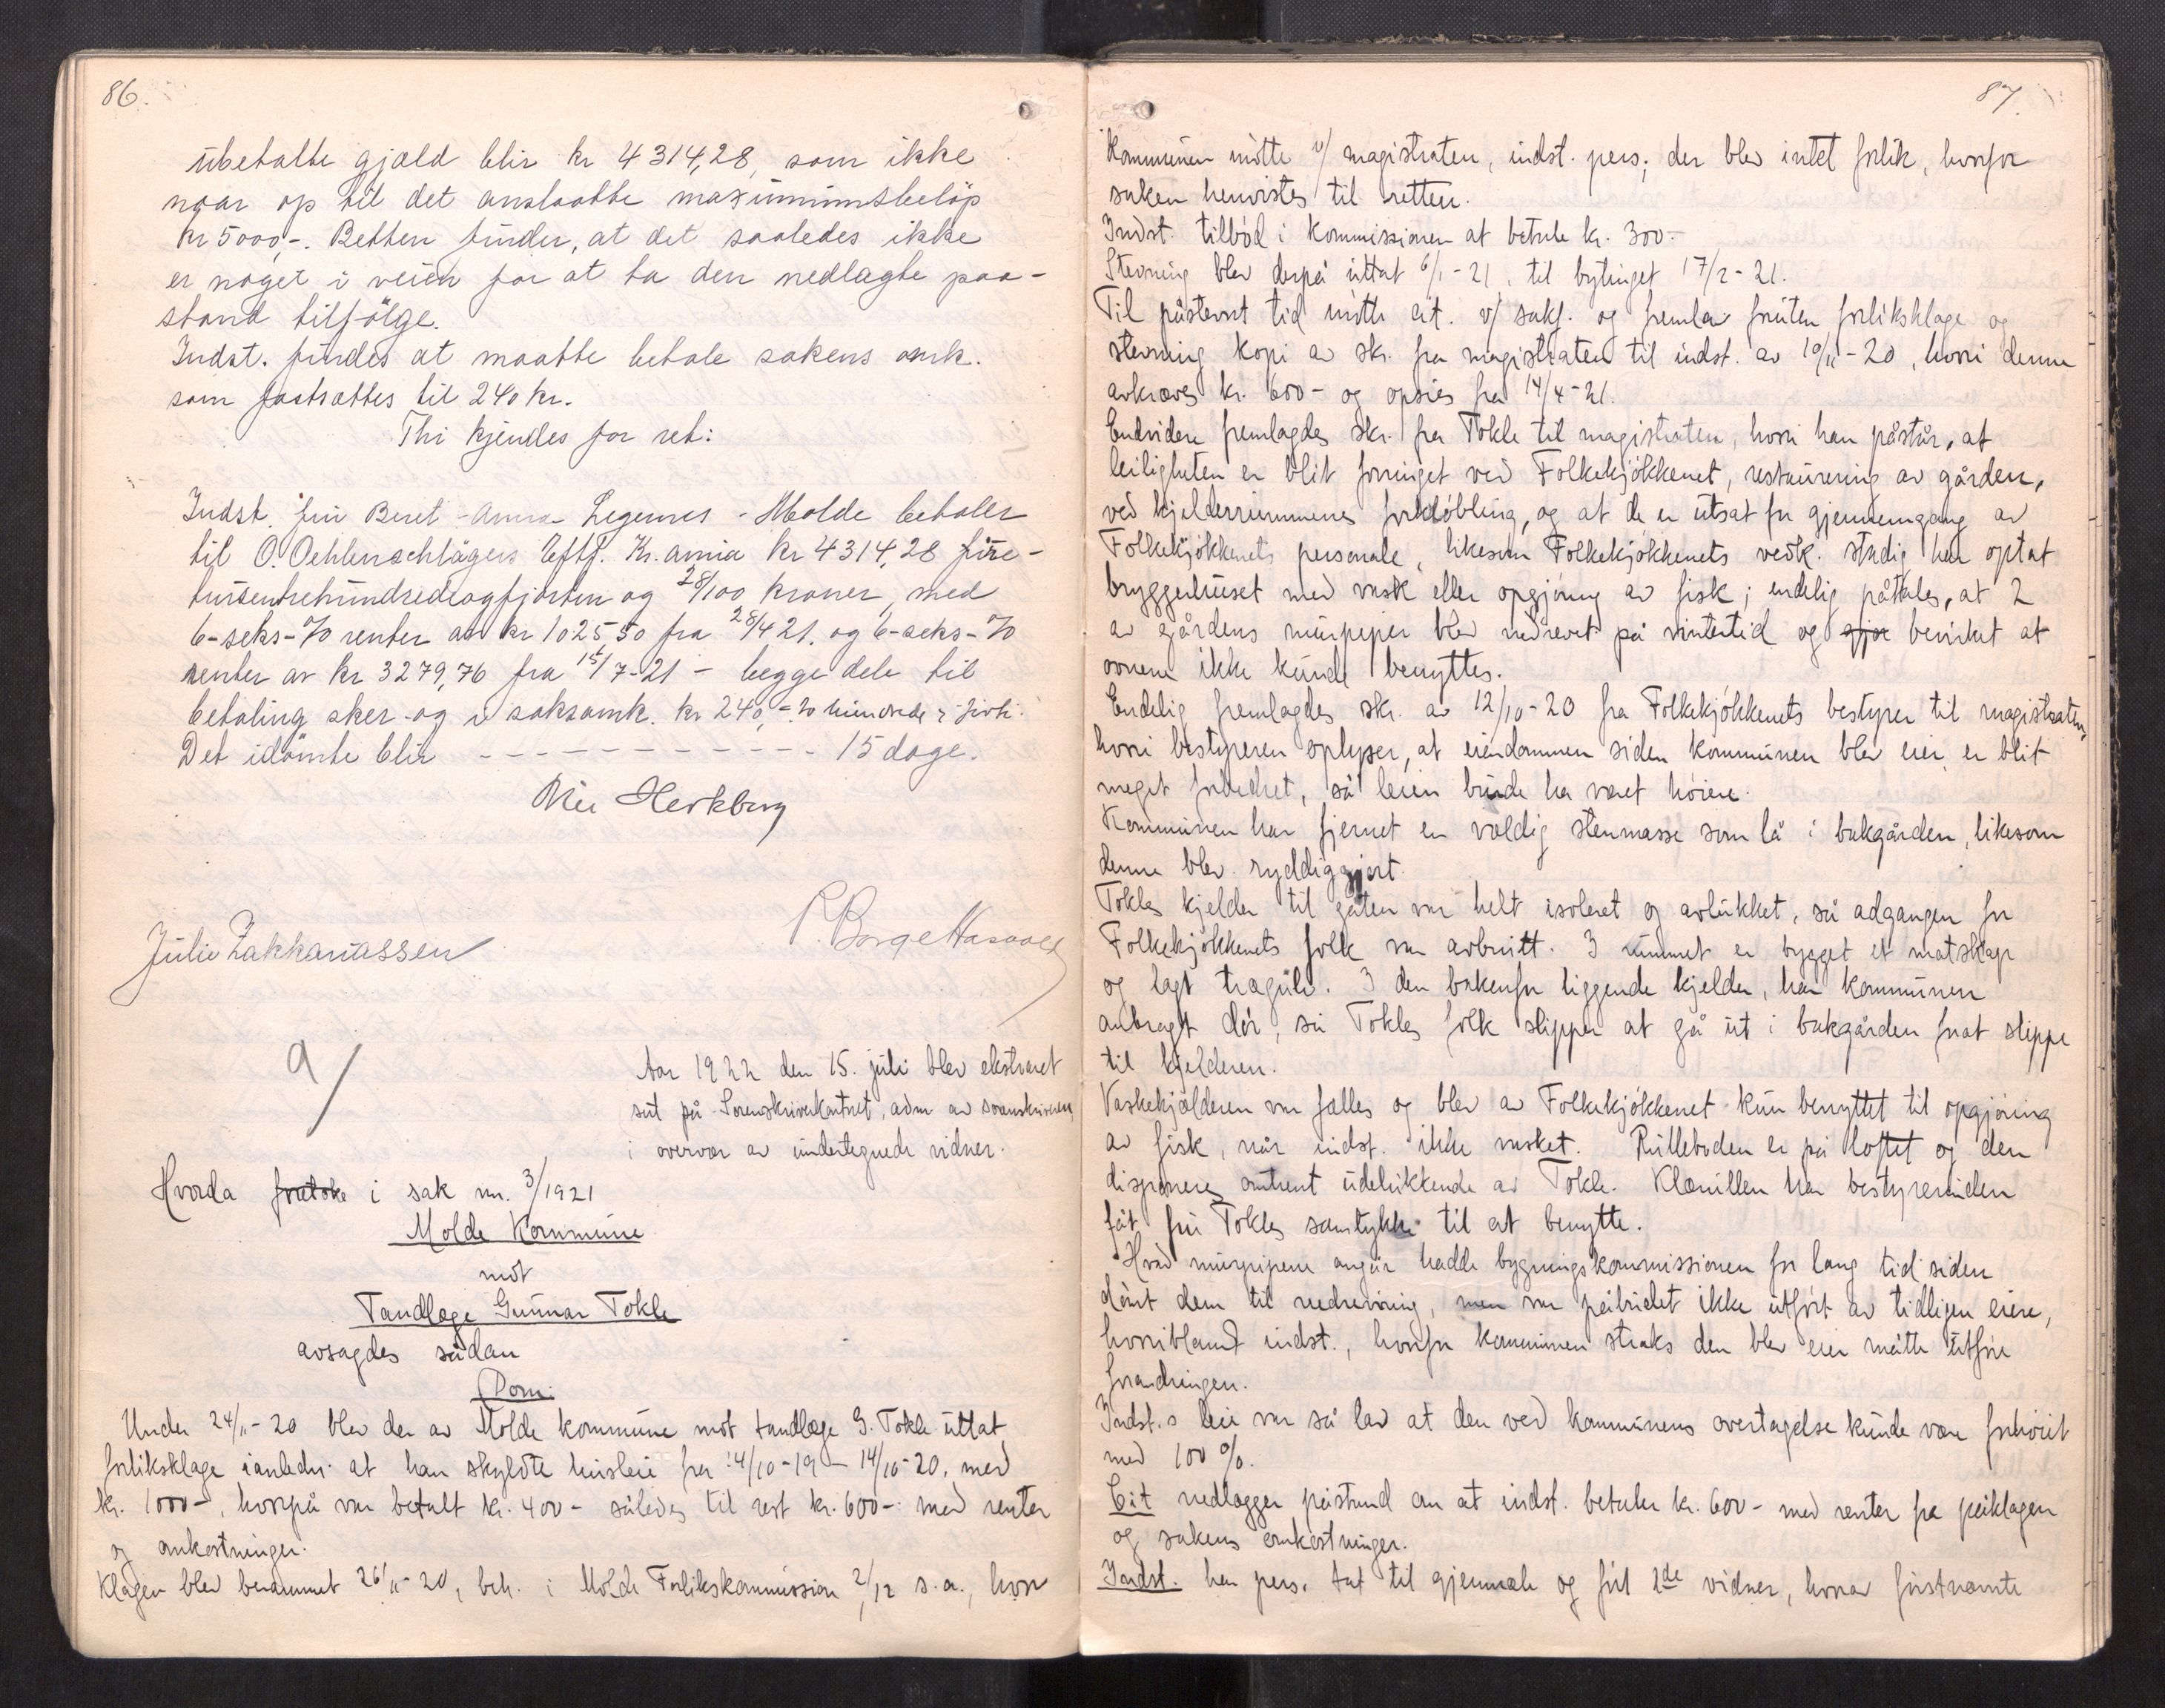 86.
ubetalte gjæld blir kr 4314,28, som ikke
naar op til det anslaatte maximumsbeløp
kr 5000,-. Retten finder, at det saaledes ikke
er noget i veien for at ta den nedlagte paa-
stand tilfølge.
Indst. findes at maatte betale sakens omk.
som fastsættes til 240 kr.
Thi kjendes for ret:
Indst. fru Beret-Anna Legernes - Molde betaler
til O. Oehlenschlägers Eftf. Kr.ania kr 4314,28 fire-
tusentrehundredeogfjorten og 28/100 kroner, med
6-seks-% renter av kr 1025,50 fra 28/4 21. og 6-seks-%
renter av kr 3279,76 fra 15/7-21 - begge dele til
betaling sker og i saksomk. kr 240,- to hundrede &
Det idømte blir - - - - - - - - - - 15 dage.
Julie Zakkariassen
9/
Aar 1922 den 15. juli blev ekstraret
sat på Sorenskriverkontoret, adm av sorenskriveren,
i overvær av undertegnede vidner.
Hvorda foretoke i sak nr. 3/1921
Molde Kommune
mot
Tandlæge Gunnar Tokle
avsagdes sådan
Dom:
Under 24/11-20 blev der av Molde kommune mot tandlæge G. Tokle uttat
forliksklage ianledn. at han skyldte husleie fra 14/10-19 - 14/10-20, med
kr. 1000-, hvorpå var betalt kr. 400- således til rest kr. 600- med renter
og omkostninger.
Klagen blev berammet 26/11-20, beh. i Molde Forlikskommission 2/12 s.a., hvor
87.
kommunen møtte v/ magistraten, indst. pers; der blev intet forlik, hvorfor
saken henvistes til retten.
Indst. tilbød i kommissionen at betale kr. 300.-
Stevning blev derpå uttat 6/1-21, til bytinget 17/2-21.
Til påstevnt tid møtte cit. v/ sakf. og fremla foruten forliksklage og
stevning kopi av skr. fra magistraten til indst. av 10/11-20, hvori denne
avkræves kr. 600- og opsies fra 14/4-21.
Endvidere fremlagdes skr. fra Tokle til magistraten, hvori han påstår, at
leiligheten er blit forringet ved Folkekjøkkenet, restaurering av gården,
ved kjelderrummenes fordobling, og at de er utsat for gjennemgang av
Folkekjøkkenets personale, likesom Folkekjøkkenets vedk. stadig har optat
bryggerhuset med vask eller opgjøring av fisk; endelig påtales, at 2
av gårdens murpiper blev nedrevet på vintertid og gjor bevirket at
ovnene ikke kunde benyttes.
Endelig fremlagdes skr. av 12/10-20 fra Folkekjøkkenets bestyrer til magistraten,
hvori bestyreren oplyser, at eiendommen siden kommunen blev eier er blit
meget forbedret, så leien burde ha været høiere.
Kommunen har fjernet en vældig stenmasse som lå i bakgården, likesom
denne blev ryddiggjort.
Tokles kjelder til gaten var helt isoleret og avlukket, så adgangen for
Folkekjøkkenets folk var avbrutt. I rummet er bygget et matskap
og lagt trægulv. I den bakenfor liggende kjelder, har kommunen
anbragt dør, så Tokles folk slipper at gå ut i bakgården forat slippe
til kjelderen.
Vaskekjælderen var fælles og blev av Folkekjøkkenet kun benyttet til opgjøring
av fisk, når indst. ikke vasket. Rulleboden er på loftet og den
disponeres omtrent udelukkende av Tokle. Klærullen har bestyrerinden
fåt fru Tokles samtykke til at benytte.
Hvad murpipene angår hadde bygningskommissionen for lang tid siden
dømt dem til nedrivning, men var påbudet ikke utført av tidligere eiere,
hvoriblandt indst., hvorfor kommunen straks den blev eier måtte utføre
forandringen.
Indst.s leie var så lav at den ved kommunens overtagelse kunde være forhøiet
med 100 %.
Cit nedlægger påstand om at indst. betaler kr. 600- med renter fra påklagen
og sakens omkostninger.
Indst. har pers. tat til gjenmæle og ført 2de vidner, hvorav førstnævnte